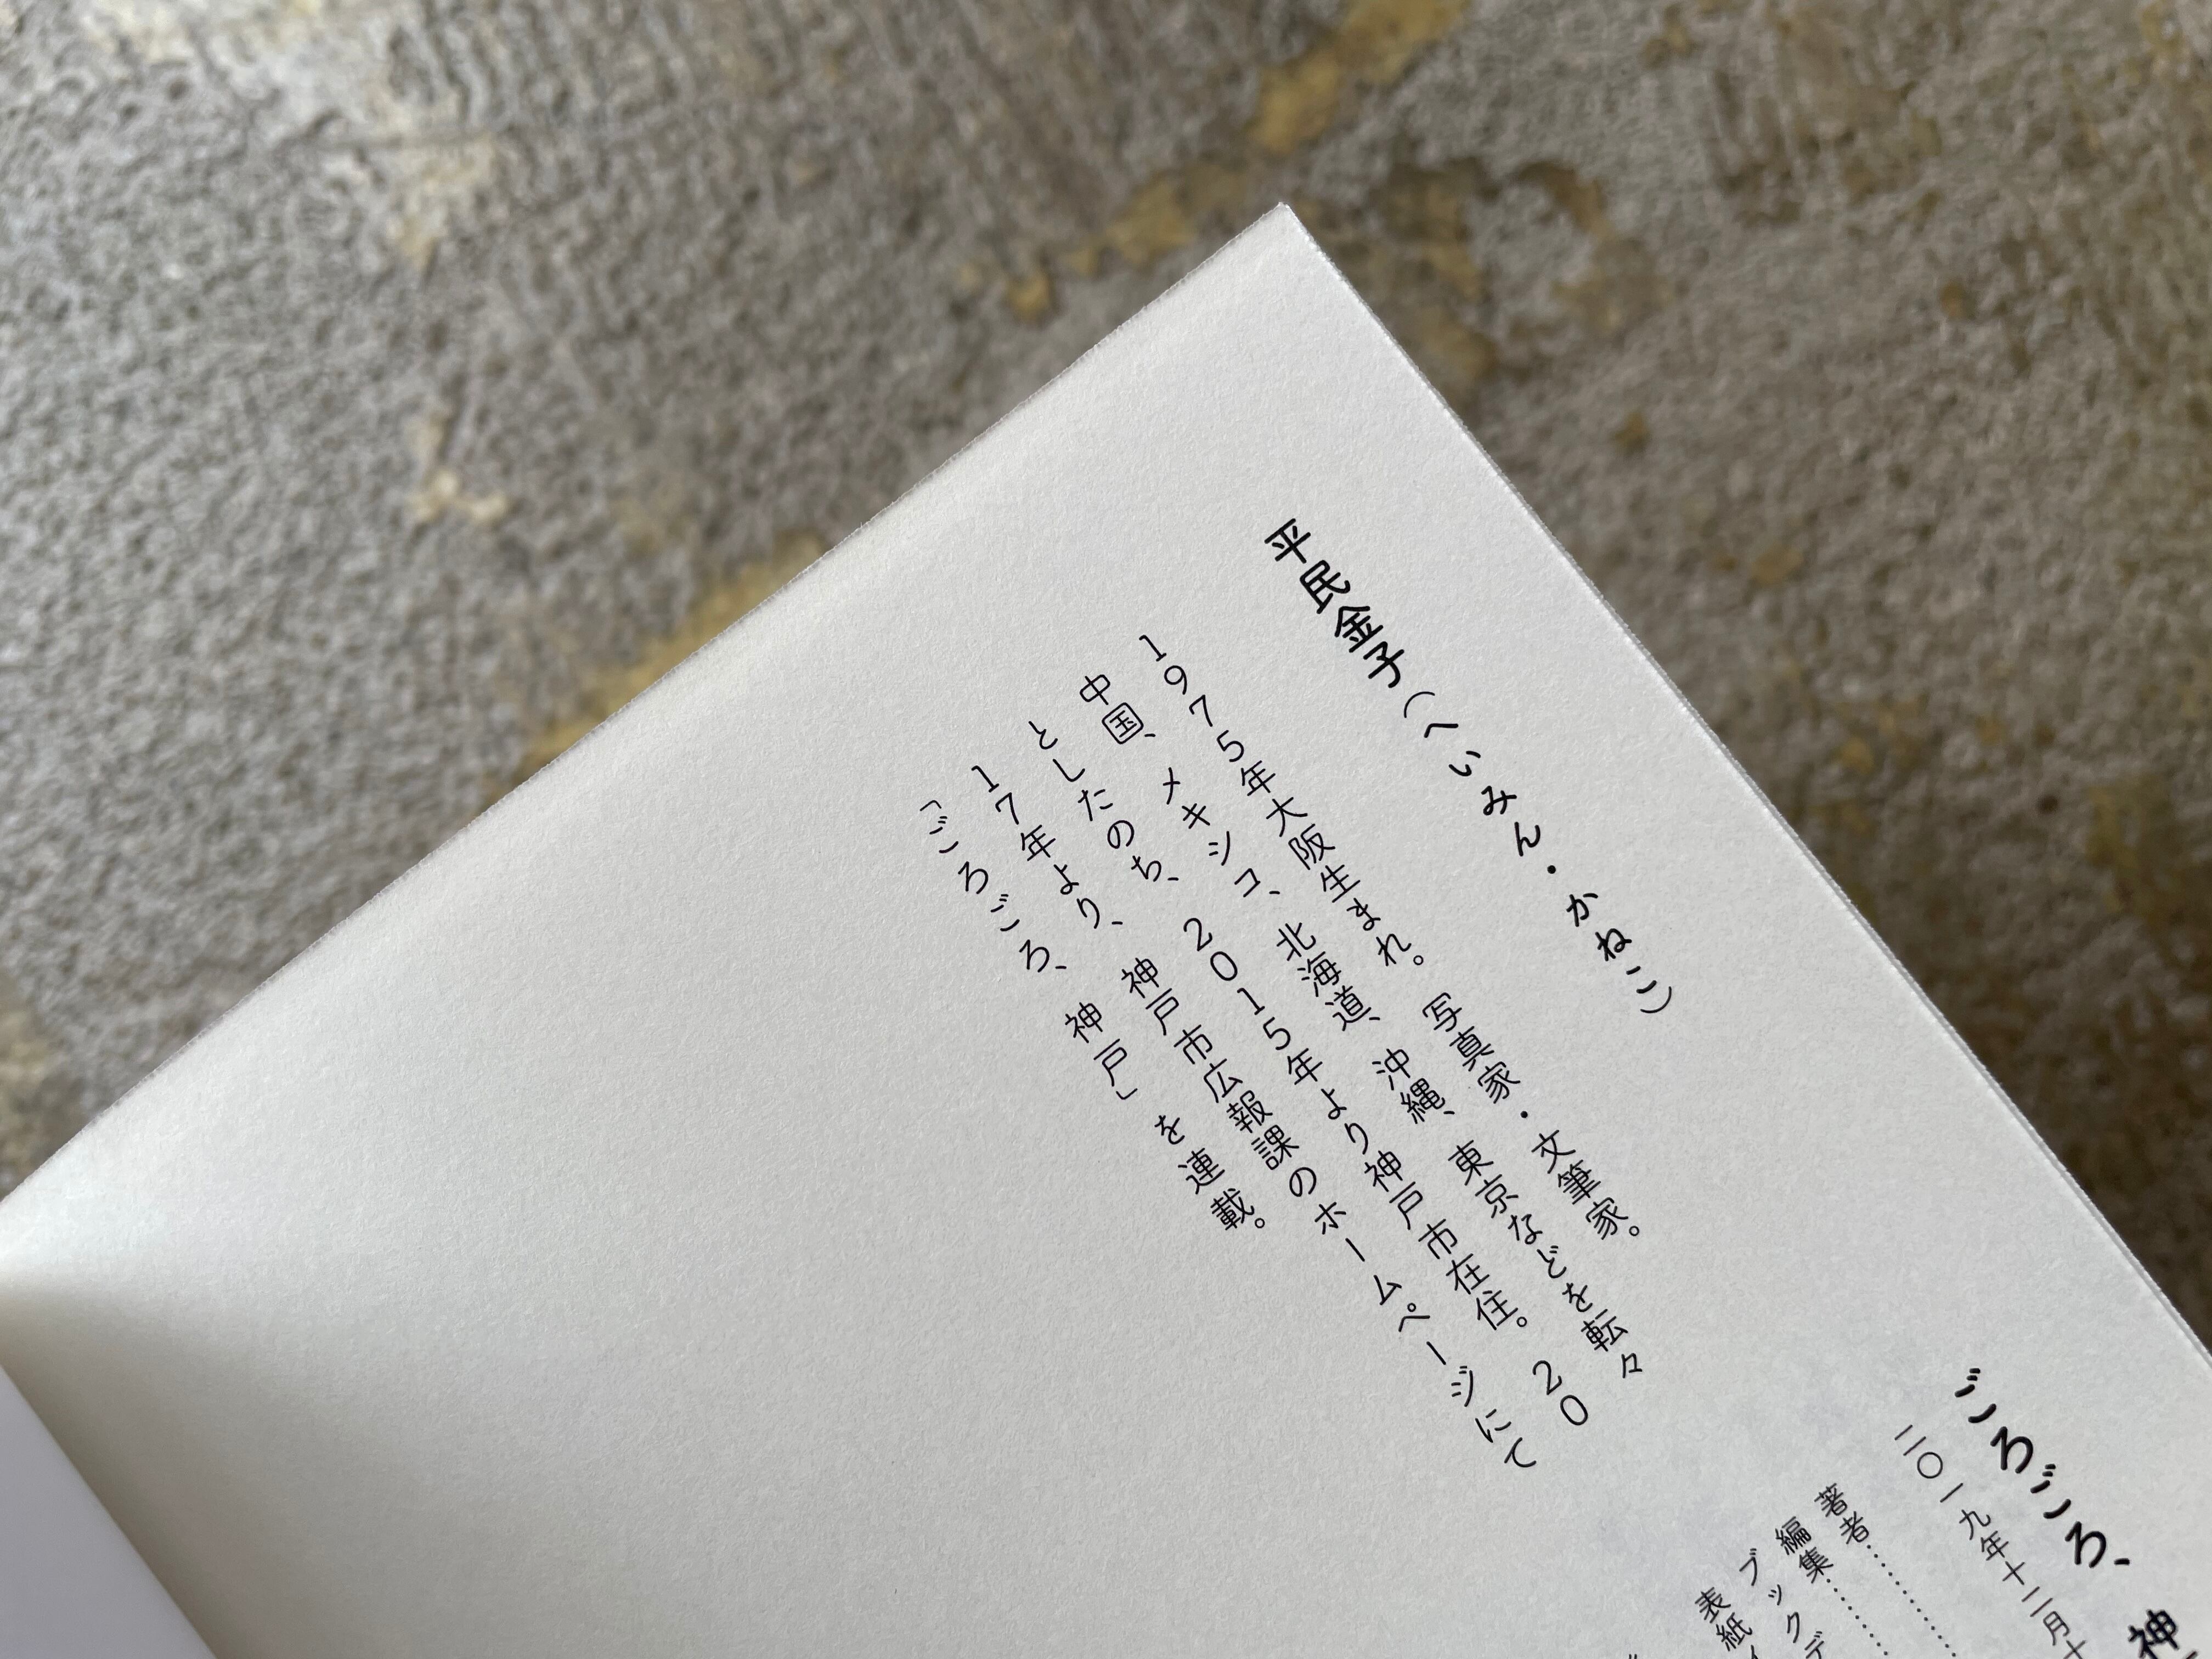 平民金子(へいみん・かねこ)
1975年大阪生まれ。写真家・文筆家。
中国、メキシコ、北海道、沖縄、東京などを転々
としたのち、2015年より神戸市在住。20
17年より、神戸市広報課のホームページにて
「ごろごろ、神戸」を連載。
ごろごろ、神
二〇一九年十二月十
著者…………
編集…………
ブックデ
表紙イ